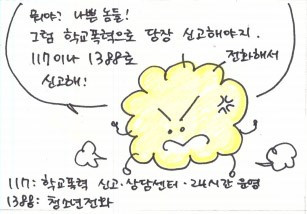 뭐야? 나쁜 놈들!
그럼 학교폭력으로 당장 신고해야지.
117이나 1388로 전화해서
신고해!
117: 학교폭력 신고·상담센터·24시간 운영
1388: 청소년전화